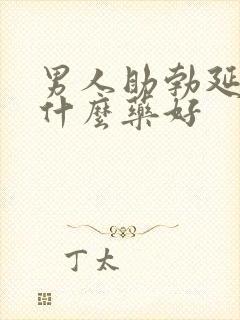 男人助勃延
什麼藥好
丁太